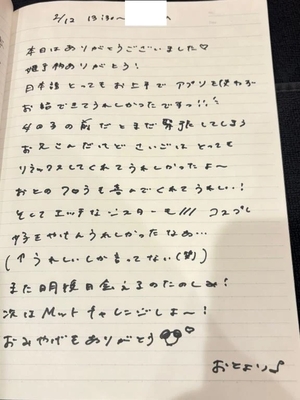 2/12 13:30〜
本日はありがとうございました♡
ありがとう!
日本語とってもお上手でアプリを使わず
お話できてうれしかったですっ!!
4の子の前だとまだ緊張してしまう
お兄さんだけどさいごはとっても
リラックスしてくれてうれしかったよ〜
おとのフロウも喜んでくれてうれしい!
そしてエッチなシスターも/// コスプレ
うれしかったなぁ…
(↑うれしいしか言ってない(笑))
また明後日会えるのたのしみ!
次はMットチャレンジしよ〜!
おみやげもありがとう♡
おとより♪